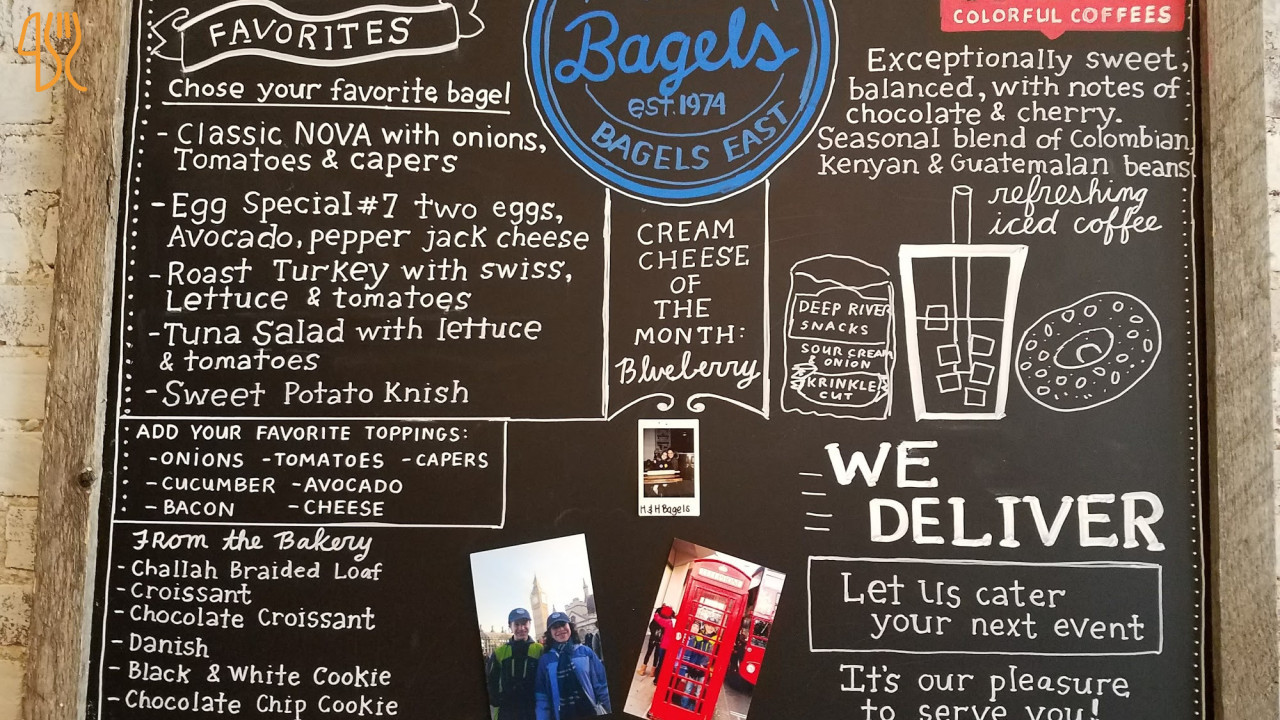 FAVORITES
Chose your favorite bagel
- Classic NOVA with onions,
Tomatoes & capers
- Egg Special #7 two eggs,
Avocado, pepper jack cheese
- Roast Turkey with swiss,
Lettuce & tomatoes
- Tuna Salad with lettuce
& tomatoes
- Sweet Potato Knish
ADD YOUR FAVORITE TOPPINGS:
- ONIONS - TOMATOES - CAPERS
- CUCUMBER - AVOCADO
- BACON - CHEESE
From the Bakery
- Challah Braided Loaf
- Croissant
- Chocolate Croissant
- Danish
- Black & White Cookie
- Chocolate Chip Cookie
Bagels
est. 1974
BAGELS EAST
CREAM
CHEESE
OF
THE
MONTH:
Blueberry
H&H Bagels
COLORFUL COFFEES
Exceptionally sweet,
balanced, with notes of
chocolate & cherry.
Seasonal blend of Colombian,
Kenyan & Guatemalan beans.
refreshing
iced coffee
DEEP RIVER
SNACKS
SOUR CREAM
& ONION
KRINKLE
CUT
WE
DELIVER
Let Us cater
your next event
It's our pleasure
to serve you!